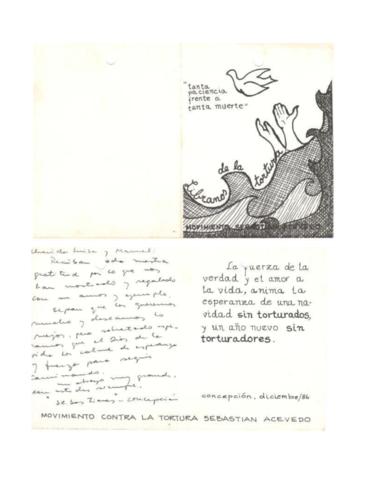 "tanta
paciencia
frente a
tanta muerte"
líbranos de la tortura
MOVIMIENTO SEBASTIAN ACEVEDO
Luisa y Manuel:
Reciban toda nuestra
gratitud por lo que nos
han mostrado y regalado
con su amor y ejemplo.
Sepan que los queremos
mucho y deseamos lo
mejor, pero sobretodo
que el Dios de la
vida los colme de esperanza
y fuerza para seguir
caminando.
un abrazo muy grande,
siempre.
Concepción
La fuerza de la
verdad y el amor a
la vida, anima la
esperanza de una na-
vidad sin torturados,
y un año nuevo sin
torturadores.
concepción, diciembre/86
MOVIMIENTO CONTRA LA TORTURA SEBASTIAN ACEVEDO